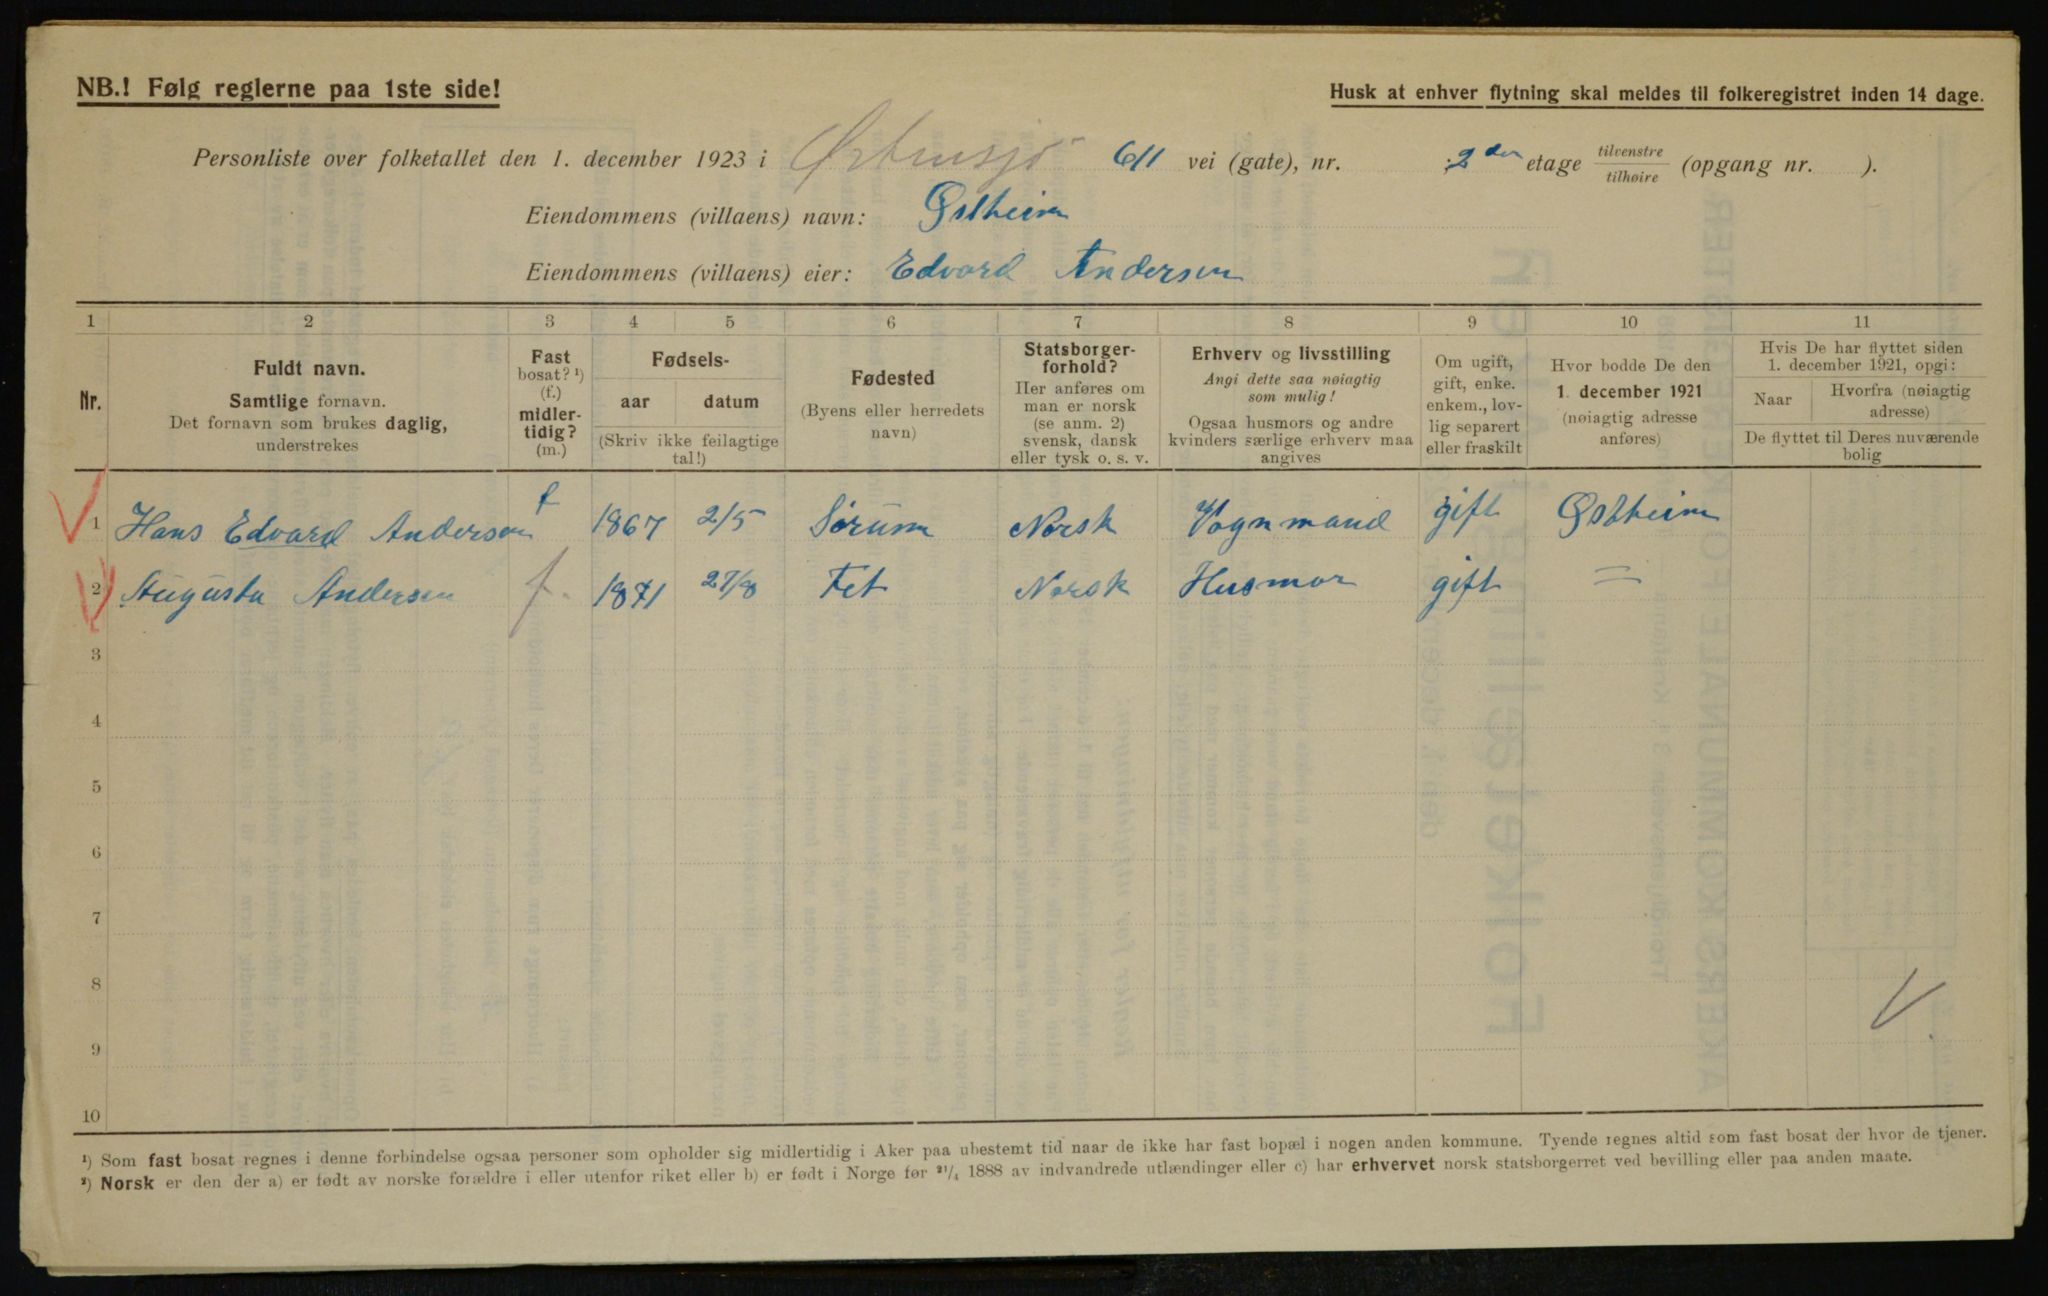 NB.! Følg reglerne paa 1ste side!
Husk at enhver flytning skal meldes til folkeregistret inden 14 dage.
Personliste over folketallet den 1. december 1923 i Østensjø 611 vei (gate), nr. 2den etage tilvenstre tilhøire (opgang nr. ).
Eiendommens (villaens) navn: Østheim
Eiendommens (villaens) eier: Edvard Andersen
1 2 3 4 5 6 7 8 9 10 11
Nr.
Fuldt navn.
Samtlige fornavn.
Det fornavn som brukes daglig,
understrekes
Fast
bosat? ¹)
(f.)
midler-
tidig?
(m.)
Fødsels-
aar datum
(Skriv ikke feilagtige
tal!)
Fødested
(Byens eller herredets
navn)
Statsborger-
forhold?
Her anføres om
man er norsk
(se anm. 2)
svensk, dansk
eller tysk o. s. v.
Erhverv og livsstilling
Angi dette saa nøiagtig
som mulig!
Ogsaa husmors og andre
kvinders særlige erhverv maa
angives
Om ugift,
gift, enke.
enkem., lov-
lig separert
eller fraskilt
Hvor bodde De den
1. december 1921
(nøiagtig adresse
anføres)
Hvis De har flyttet siden
1. december 1921, opgi:
Naar
Hvorfra (nøiagtig
adresse)
De flyttet til Deres nuværende
bolig
1 Hans Edvard Andersen f 1867 2/5 Sørum Norsk Vognmand gift Østheim
2 Augusta Andersen f. 1871 27/8 Fet Norsk Husmor gift =
3
4
5
6
7
8
9
10
¹) Som fast bosat regnes i denne forbindelse ogsaa personer som opholder sig midlertidig i Aker paa ubestemt tid naar de ikke har fast bopæl i nogen anden kommune. Tyende regnes altid som fast bosat der hvor de tjener.
²) Norsk er den der a) er født av norske forældre i eller utenfor riket eller b) er født i Norge før ²¹/₄ 1888 av indvandrede utlændinger eller c) har erhvervet norsk statsborgerret ved bevilling eller paa anden maate.